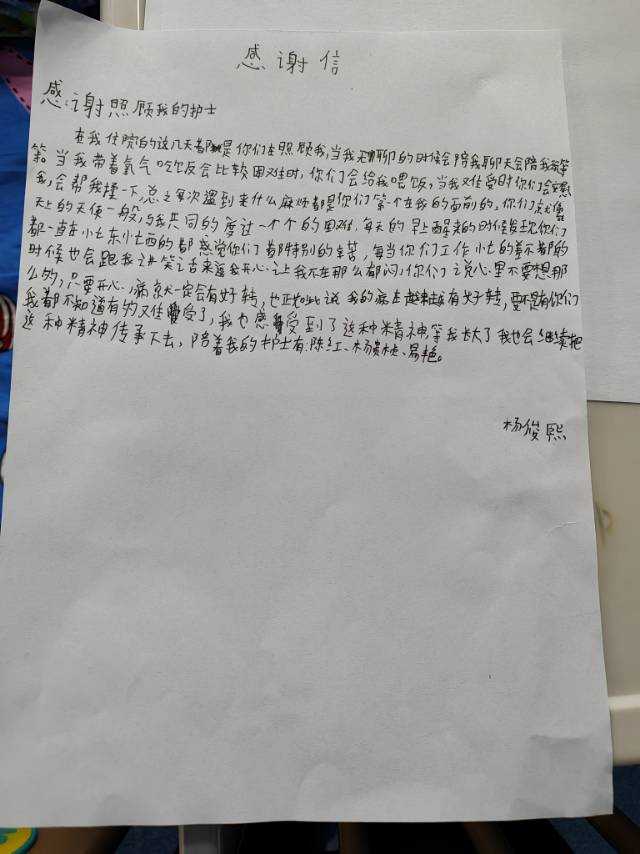 感谢信
感谢照顾我的护士
在我住院的这几天都是你们在照顾我,当我无聊的时候会陪我聊天会陪我玩等
等,当我带着氧气吃饭会比较困难时,你们会给我喂饭,当我难受时你们会安慰
我,会帮我揉一下,总之每次遇到来什么麻烦都是你们第一个在我的面前的,你们就像
天上的天使一般,与我共同的度过一个个的困难,每天的早上醒来的时候发现你们
都一直在忙东忙西的都感觉你们都特别的辛苦,每当你们工作忙的差不都的
时候也会跟我讲笑话来逗我开心让我不在那么都闷,你们说心里不要想那
么的,只要开心,病就一定会有好转,也正如此说我的病在越来越有好转,要不是有你们
我都不知道有的难受了,我也感受到了这种精神,等我长大了我也会继续把
这种精神传承下去,陪着我的护士有:陈红、杨贵、易艳。
杨俊熙